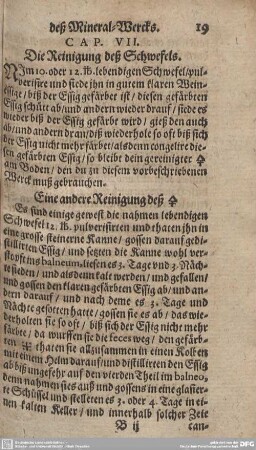 deß Mineral-Wercks. 19
CAP. VII.
Die Reinigung deß Schwefels.
NIm 10. oder 12. ℔. lebendigen Schwefel/pul-
verisire und siede ihn in gutem klaren Wein-
essige/biß der Essig gefärbet ist/ diesen gefärbten
Essig schütt ab/und andern wieder drauf/ siede es
wieder biß der Essig gefärbt wird/ gieß den auch
ab/und andern dran/diß wiederhole so oft biß sich
der Essig nicht mehr färbet/alsdenn congelire die-
sen gefärbten Essig/ so bleibt dein gereinigter 🜍
am Boden/ den du zu diesem vorbeschriebenen
Werck must gebrauchen.
Eine andere Reinigung deß 🜍
Es sind einige gewest die nahmen lebendigen
Schwefel 12. ℔. pulverisirten und thaten ihn in
eine grosse steinerne Kanne/ gossen darauf gedi-
stillirten Essig/ und setzten die Kanne wohl ver-
stopft ins balneum/liesen es 3. Tage und 3. Näch-
te sieden/ und alsdenn kalt werden/ und gefallen/
und gossen den klaren gefärbten Essig ab/ und an-
dern darauf/ und nach deme es 3. Tage und
Nächte gesotten hatte/ gossen sie es ab/ das wie-
derholten sie so oft/ biß sich der Essig nicht mehr
färbte/ da wurffen sie die feces weg/ den gefärb-
ten thaten sie allzusammen in einen Kolben
mit einem Helm darauf/und distillirten den Essig
ab biß ungefehr auf den vierden Theil im balneo,
denn nahmen sies auß und gossens in eine glasier-
te Schüssel und stelleten es 3. oder 4. Tage in ei-
nen kalten Keller/ und innerhalb solcher Zeit
B ij can-